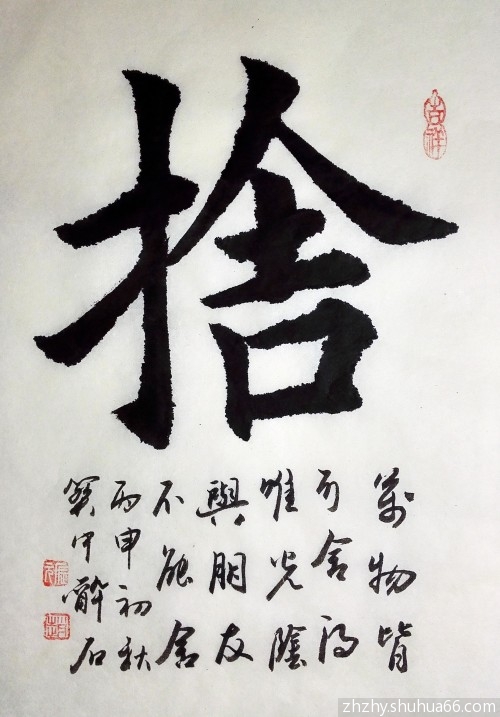 捨
吉祥
萬物皆
可舍得
唯光陰
與朋友
不能舍
丙申初秋
醉石
zhzhy.shuhua66.com